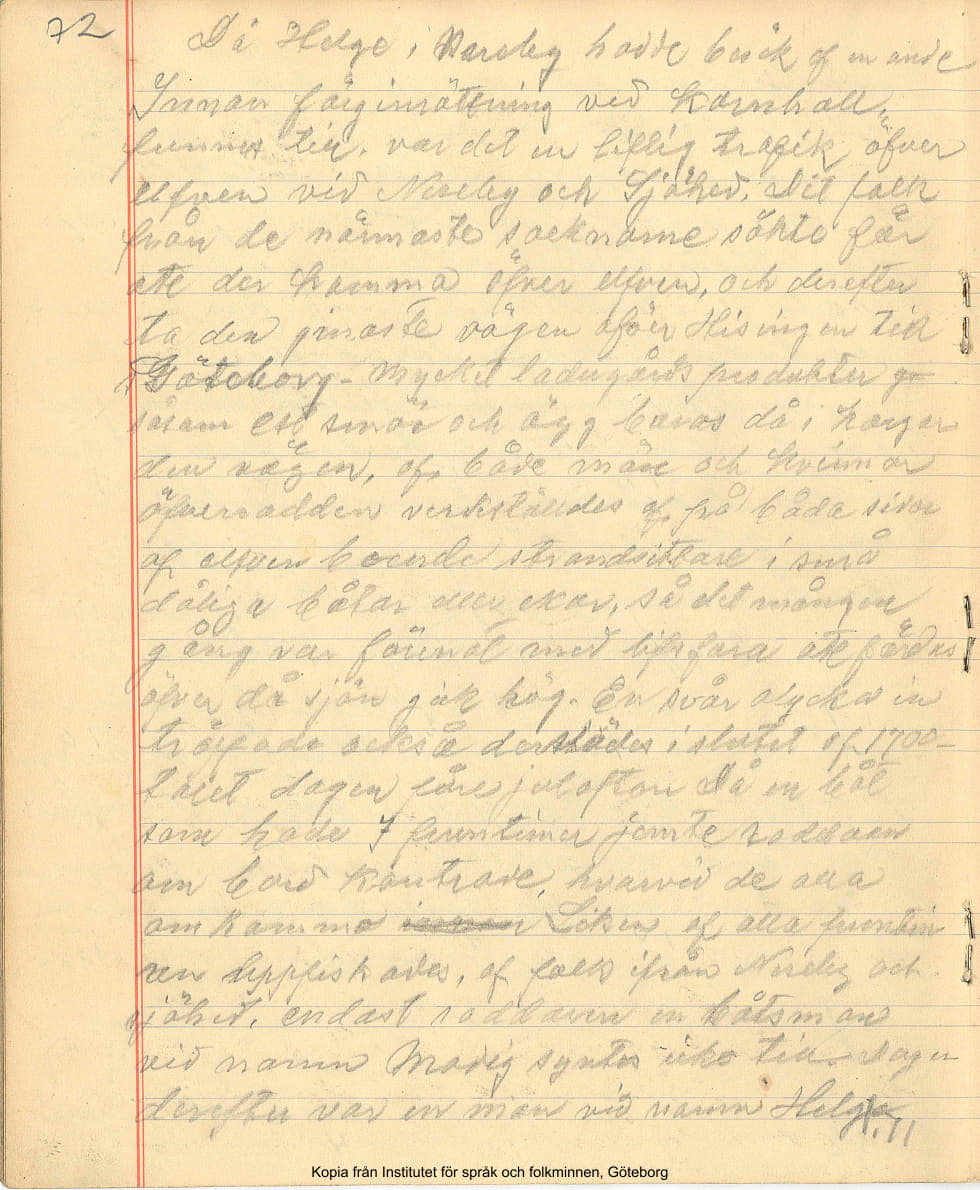 72
Då Helge i Nereby hadde besök af en ande
Innan färginrättning ved Kornhall
funnes till. var det en liflig trafik öfver
elfven vid Nereby och Sjöhed. Dit folk
från de närmaste socknarne sökte för
att der komma öfver elfven, och derefter
ta den ginaste vägen öfver Hisingen till
Göteborg - Mycket ladugårds produkter
såsom ost smör och ägg bäras då i korgar
den vägen, af både män och kvinnor
öfverrodden verkställdes af på båda sidor
af elfven boende strandsittare i små
dåliga båtar eller ekor, så det mången
gång var förenat med lifsfara att färdas
öfver då sjön gick hög. En svår olycka in
träffade också derstädes i slutet af 1700-
talet dagen före julafton Då en båt
som hade 7 fruntimer jemte roddaren
om bord kantrade, hvarvid de alla
omkommo Liken af alla fruntim
ren uppfiskades, af folk ifrån Nereby och
sjöhed, endast roddaren en båtsman
vid namn Modig syntes icke till. Dagen
derefter var en man vid namn Helge
Kopia från Institutet för språk och folkminnen, Göteborg